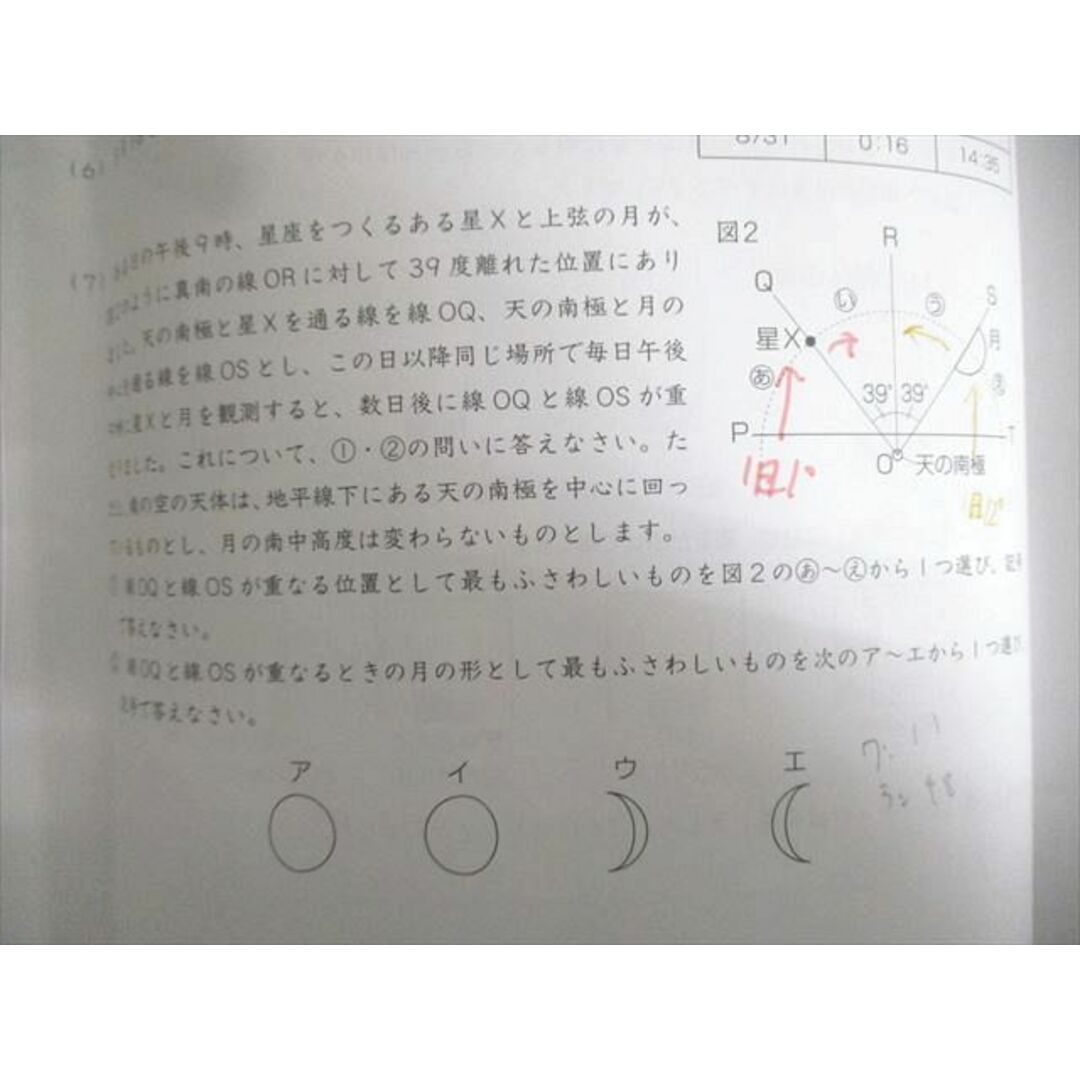 (6)
8/31 0:16 14:35
(7) の午後9時、星座をつくるある星Xと上弦の月が、
のように真南の線ORに対して39度離れた位置にあり
天の南極と星Xを通る線を線OQ、天の南極と月の
通る線を線OSとし、この日以降同じ場所で毎日午後
星Xと月を観測すると、数日後に線OQと線OSが重
ました。これについて、①・②の問いに答えなさい。た
の空の天体は、地平線下にある天の南極を中心に回っ
ているものとし、月の南中高度は変わらないものとします。
線OQと線OSが重なる位置として最もふさわしいものを図2のあ〜えから1つ選び、記号
で答えなさい。
線OQと線OSが重なるときの月の形として最もふさわしいものを次のア〜エから1つ選び、
記号で答えなさい。
図2
R
Q
S
い
う
星X
月
あ
え
39° 39°
P
T
O 天の南極
1日1°
1日12°
ア イ ウ エ